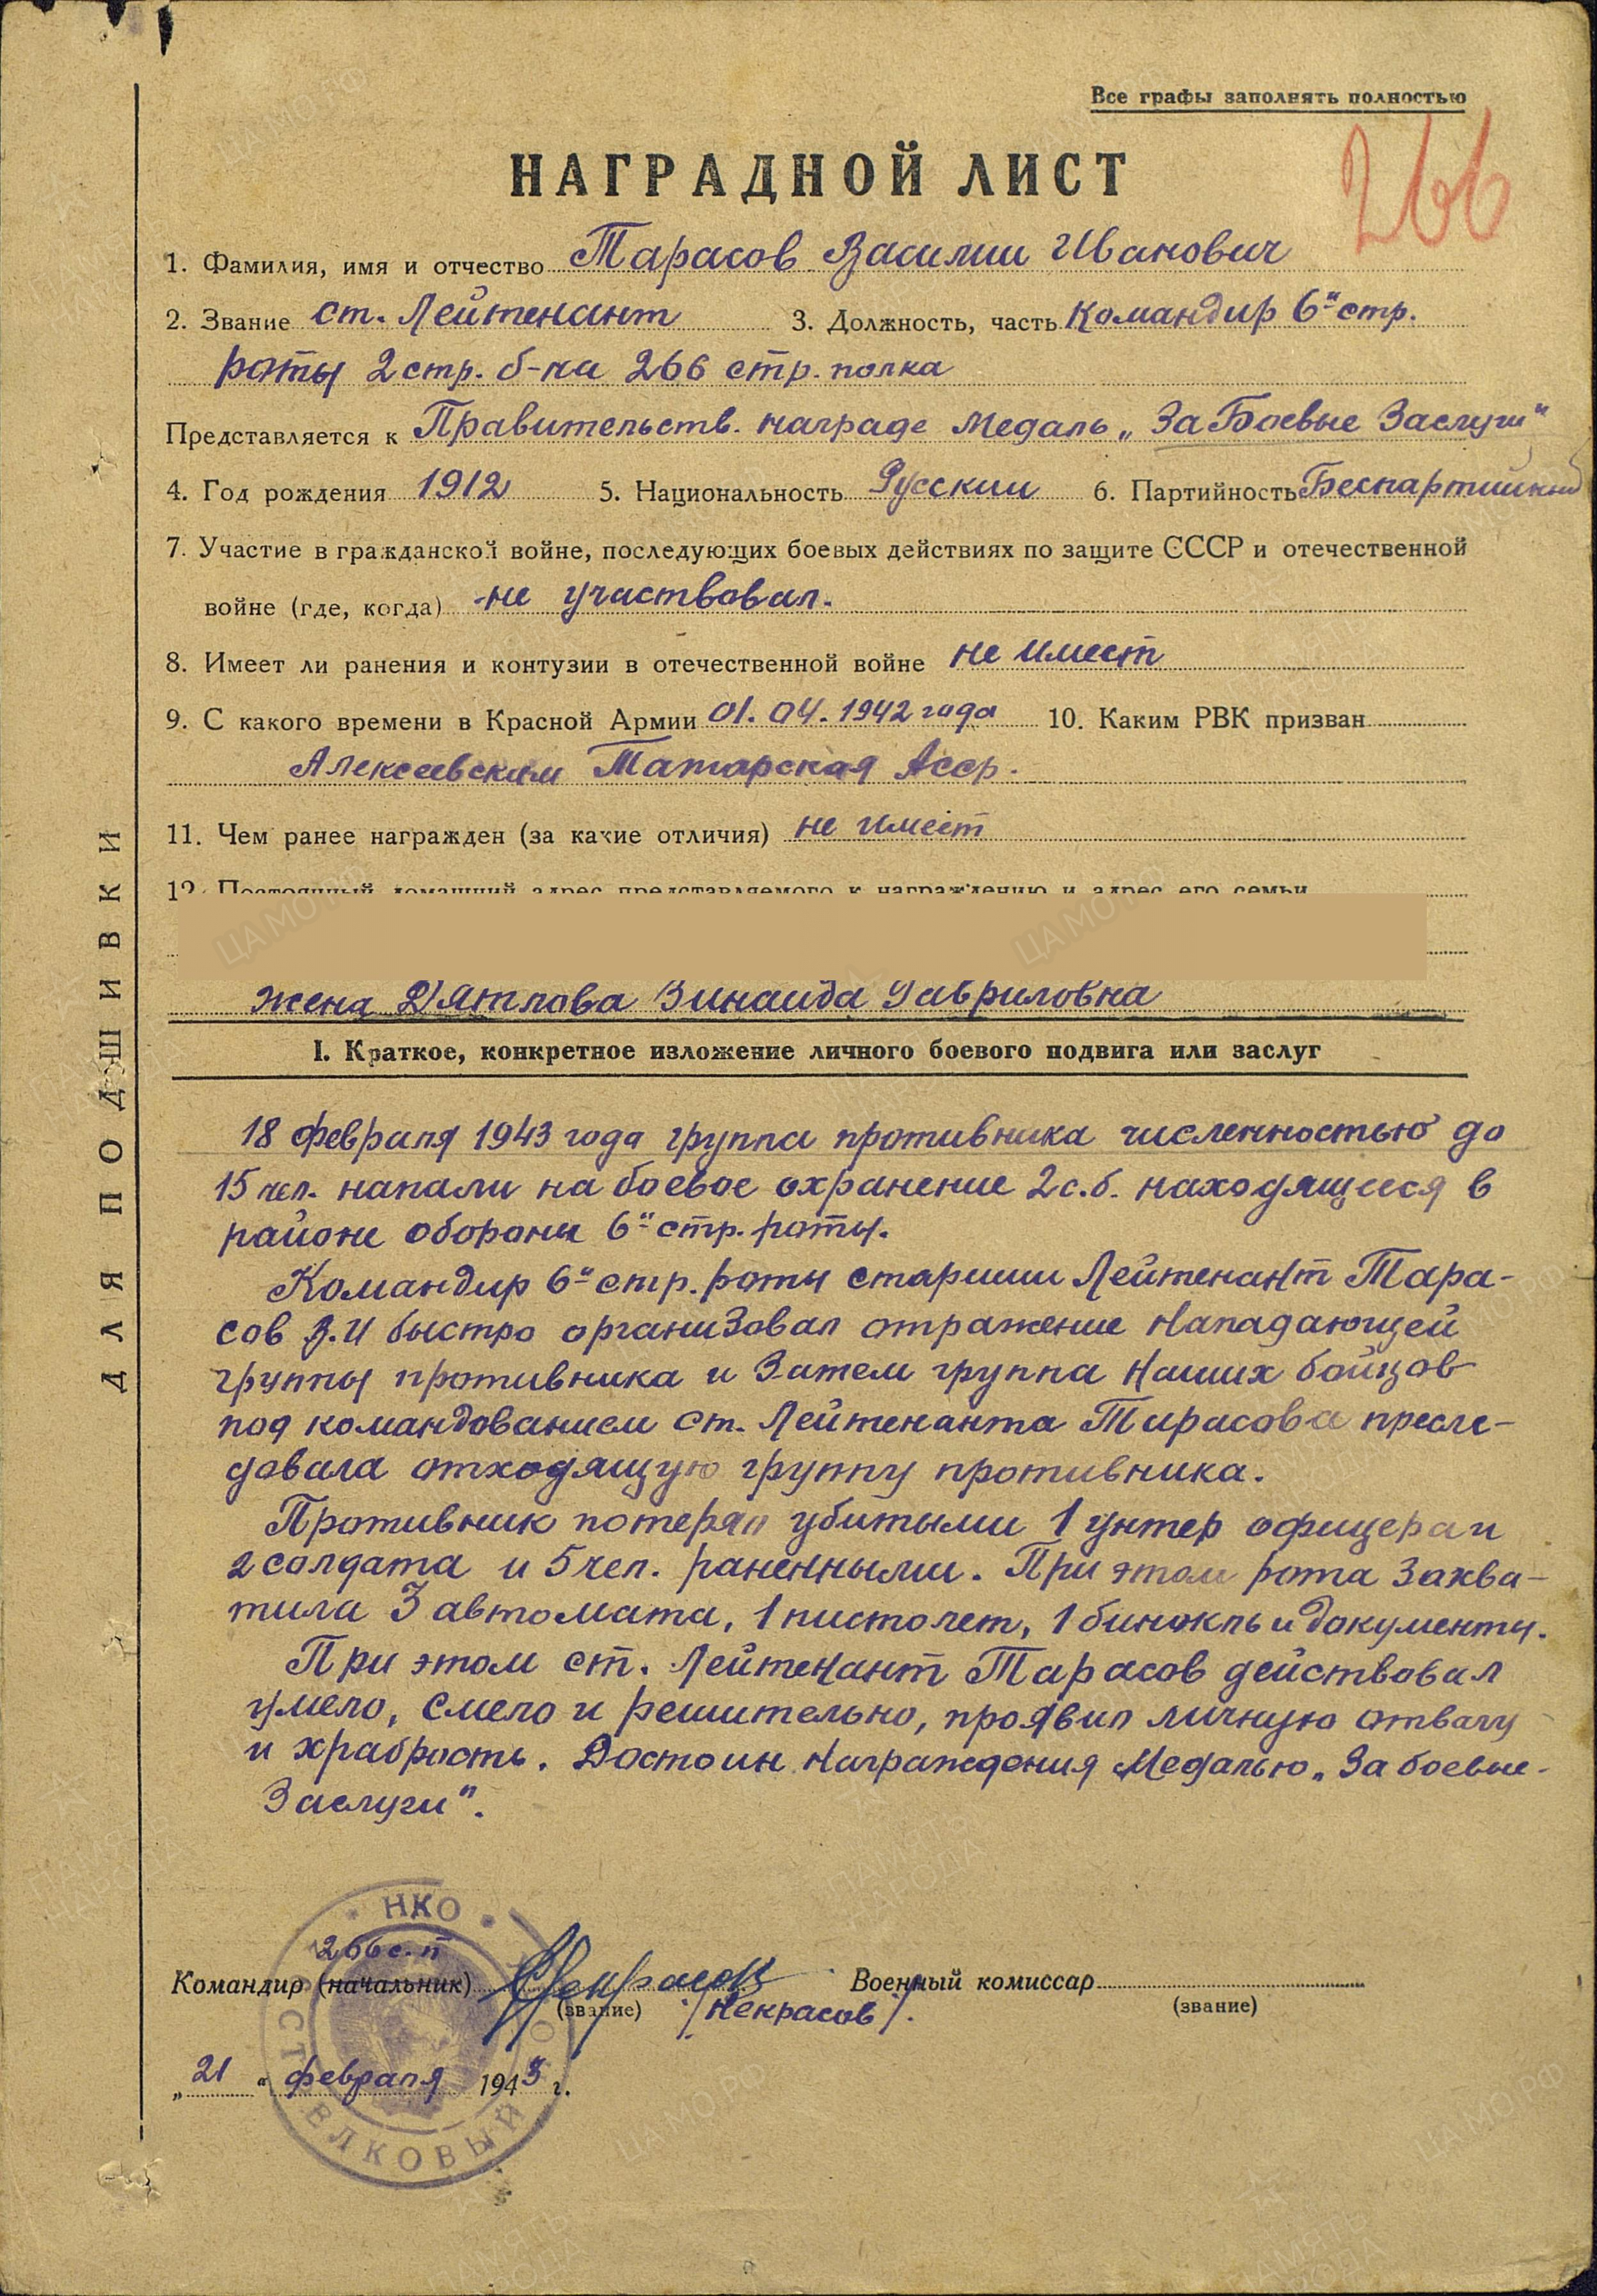 Все графы заполнять полностью
266
НАГРАДНОЙ ЛИСТ
1. Фамилия, имя и отчество Тарасов Василии Иванович
2. Звание ст. Лейтенант 3. Должность, часть Командир 6й стр.
роты 2 стр. б-на 266 стр. полка
Представляется к Правительств. награде Медаль „За Боевые Заслуги"
4. Год рождения 1912 5. Национальность Русскии 6. Партийность Беспартийный
7. Участие в гражданской войне, последующих боевых действиях по защите СССР и отечественной
войне (где, когда) не участвовал.
8. Имеет ли ранения и контузии в отечественной войне не имеет
9. С какого времени в Красной Армии 01.04.1942 года 10. Каким РВК призван
Алексеевским Татарская Асср.
11. Чем ранее награжден (за какие отличия) не имеет
12. Постоянный домашний адрес представляемого к награждению и адрес его семьи
жена Дятлова Зинаида Гавриловна
I. Краткое, конкретное изложение личного боевого подвига или заслуг
18 февраля 1943 года группа противника численностью до
15 чел. напали на боевое охранение 2 с.б. находящиеся в
районе обороны 6й стр. роты.
Командир 6й стр. роты старшии Лейтенант Тара-
сов В.И быстро организовал отражение нападающей
группы противника и Затем группа наших бойцов
под командованием ст. Лейтенанта Тарасова пресле-
довала отходящую группу противника.
Противник потерял убитыми 1 унтер офицера и
2 солдата и 5 чел. раненными. При этом рота Захва-
тила 3 автомата, 1 пистолет, 1 бинокль и документы.
При этом ст. Лейтенант Тарасов действовал
умело, смело и решительно, проявил личную отвагу
и храбрость. Достоин награждения Медалью „За боевые
Заслуги".
НКО
266 с.п
Командир (начальник) Некрасов Военный комиссар
(звание) /Некрасов/. (звание)
„21" февраля 1943 г.
СТРЕЛКОВЫЙ
ДЛЯ ПОДШИВКИ
ЦАМО.РФ
ПАМЯТЬ НАРОДА